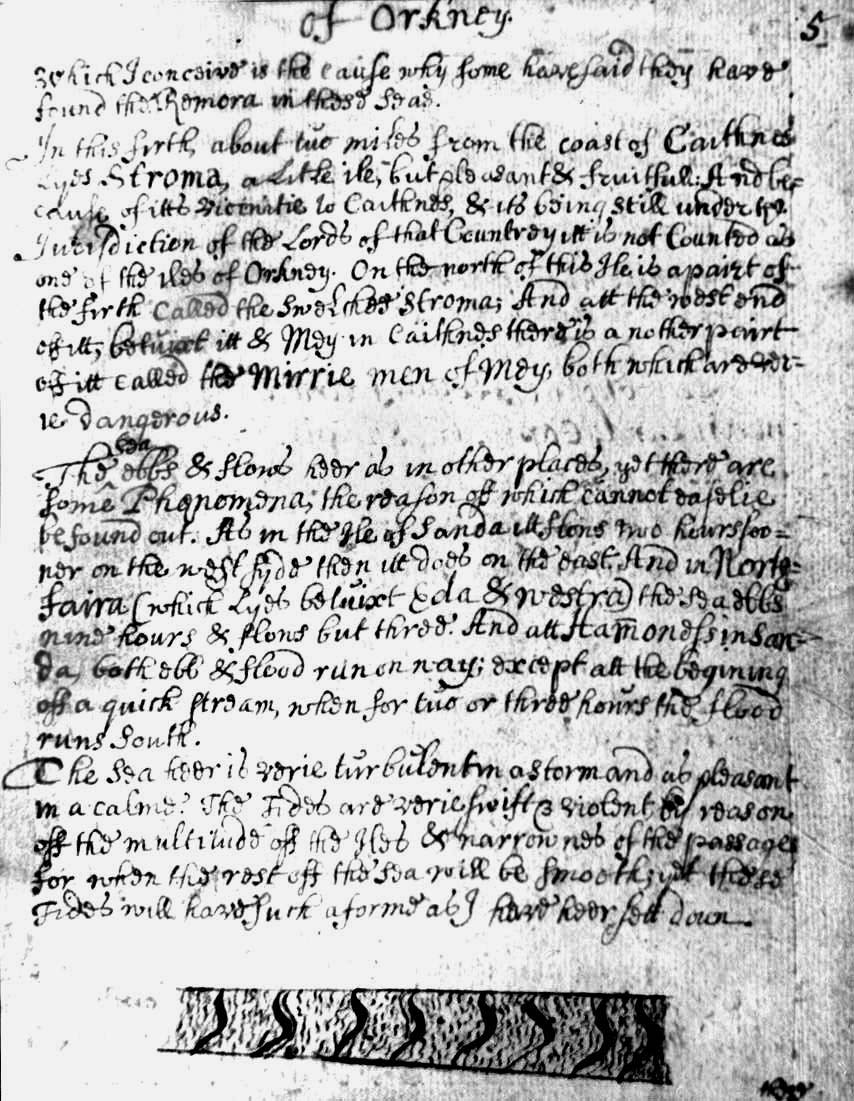 of Orkney.
5
Which I conceive is the cause why some have said they have
found the Remora in these seas.
In this firth, about two miles from the coast of Caithnes
Lyes Stroma, a Litle ile, but pleasant & fruitfull: And be=
cause of itts vicinitie to Caithnes, & its being still under the
Jurisdiction of the Lords of that Countrey itt is not Counted as
one of the Iles of Orkney. On the north of this Ile is a pairt of
the firth Called the Swelches Stroma; And att the west end
off itt, betuixt itt & Mey in Caithnes there is a nother pairt
off itt called the Mirrie men of Mey, both which are ver=
ie dangerous.
The sea ebbs & flows heer as in other places, yet there are
some Phænomena, the reason off which cannot easelie
be found out. As in the Ile of Sanda itt flows two hours soo=
ner on the west syde then itt does on the east. And in North=
faira (which Lyes betuixt Eda & Westra) the sea ebbs
nine hours & flows but three. And att Hamoness in San=
da, both ebb & flood run on way; except att the begining
off a quick stream, when for two or three hours the flood
runs south.
The sea heer is verie turbulent in a storm and as pleasant
in a calme. The Tides are verie swift & violent by reason
off the multitude off the Iles & narrownes of the passages
for when the rest off the sea will be smooth; yet these
Tides will have such a forme as I have heer sett down.